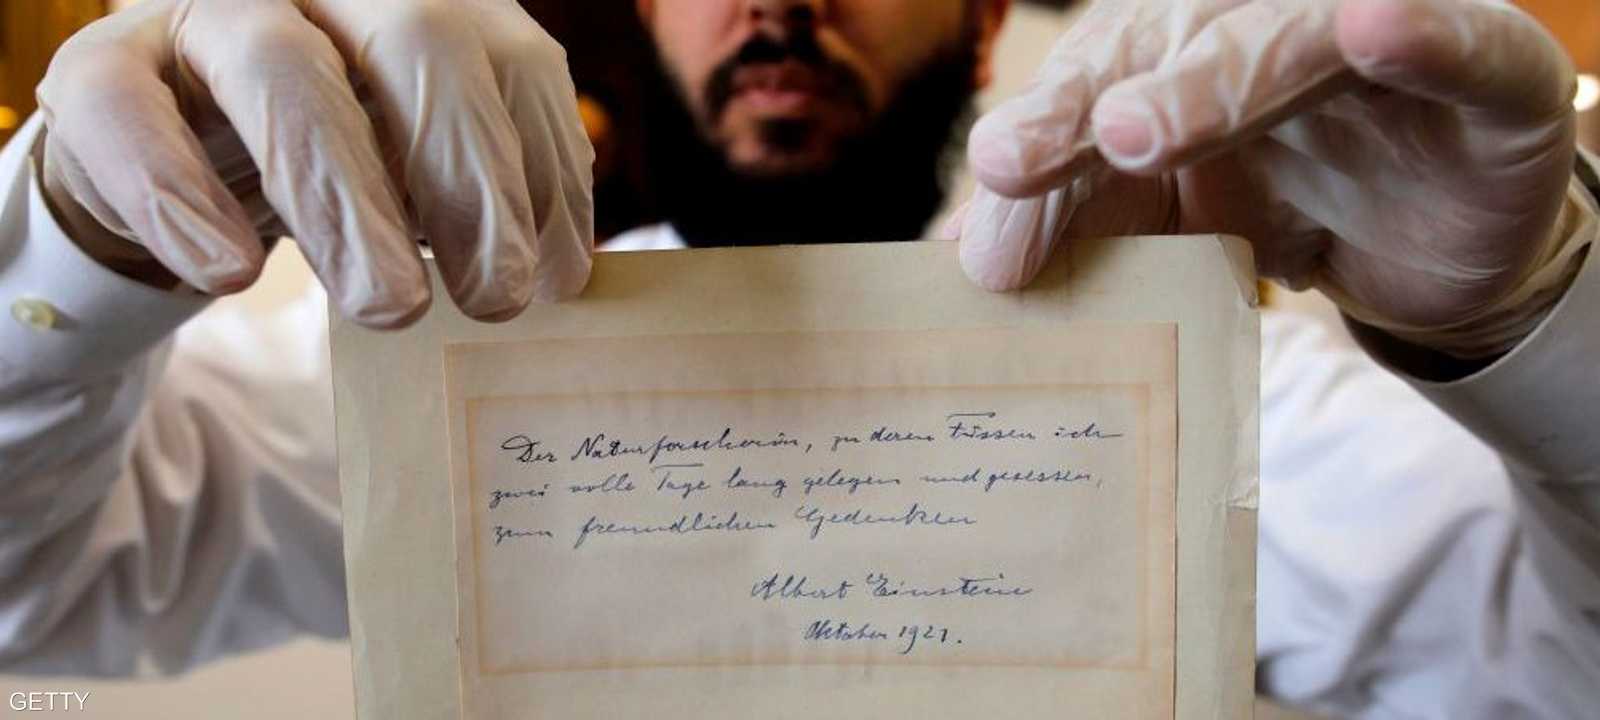 Der Naturforscherin, zu deren Füssen ich
zwei volle Tage lang gelegen und gesessen,
zum freundlichen Gedenken
Albert Einstein
Oktober 1921.
GETTY